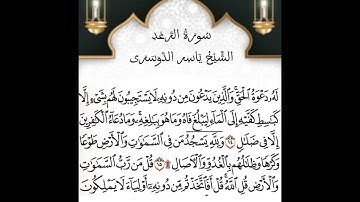 سورة الرعد
الشيخ ياسر الدوسري
لَهُۥ دَعْوَةُ ٱلْحَقِّ وَٱلَّذِينَ يَدْعُونَ مِن دُونِهِۦ لَا يَسْتَجِيبُونَ لَهُم بِشَىْءٍ إِلَّا
كَبَـٰسِطِ كَفَّيْهِ إِلَى ٱلْمَآءِ لِيَبْلُغَ فَاهُ وَمَا هُوَ بِبَـٰلِغِهِۦ وَمَا دُعَآءُ ٱلْكَـٰفِرِينَ
إِلَّا فِى ضَلَـٰلٍ ١٤ وَلِلَّهِ يَسْجُدُ مَن فِى ٱلسَّمَـٰوَٰتِ وَٱلْأَرْضِ طَوْعًا
وَكَرْهًا وَظِلَـٰلُهُم بِٱلْغُدُوِّ وَٱلْـَٔاصَالِ ۩ ١٥ قُلْ مَن رَّبُّ ٱلسَّمَـٰوَٰتِ
وَٱلْأَرْضِ قُلِ ٱللَّهُ قُلْ أَفَٱتَّخَذْتُم مِّن دُونِهِۦٓ أَوْلِيَآءَ لَا يَمْلِكُونَ